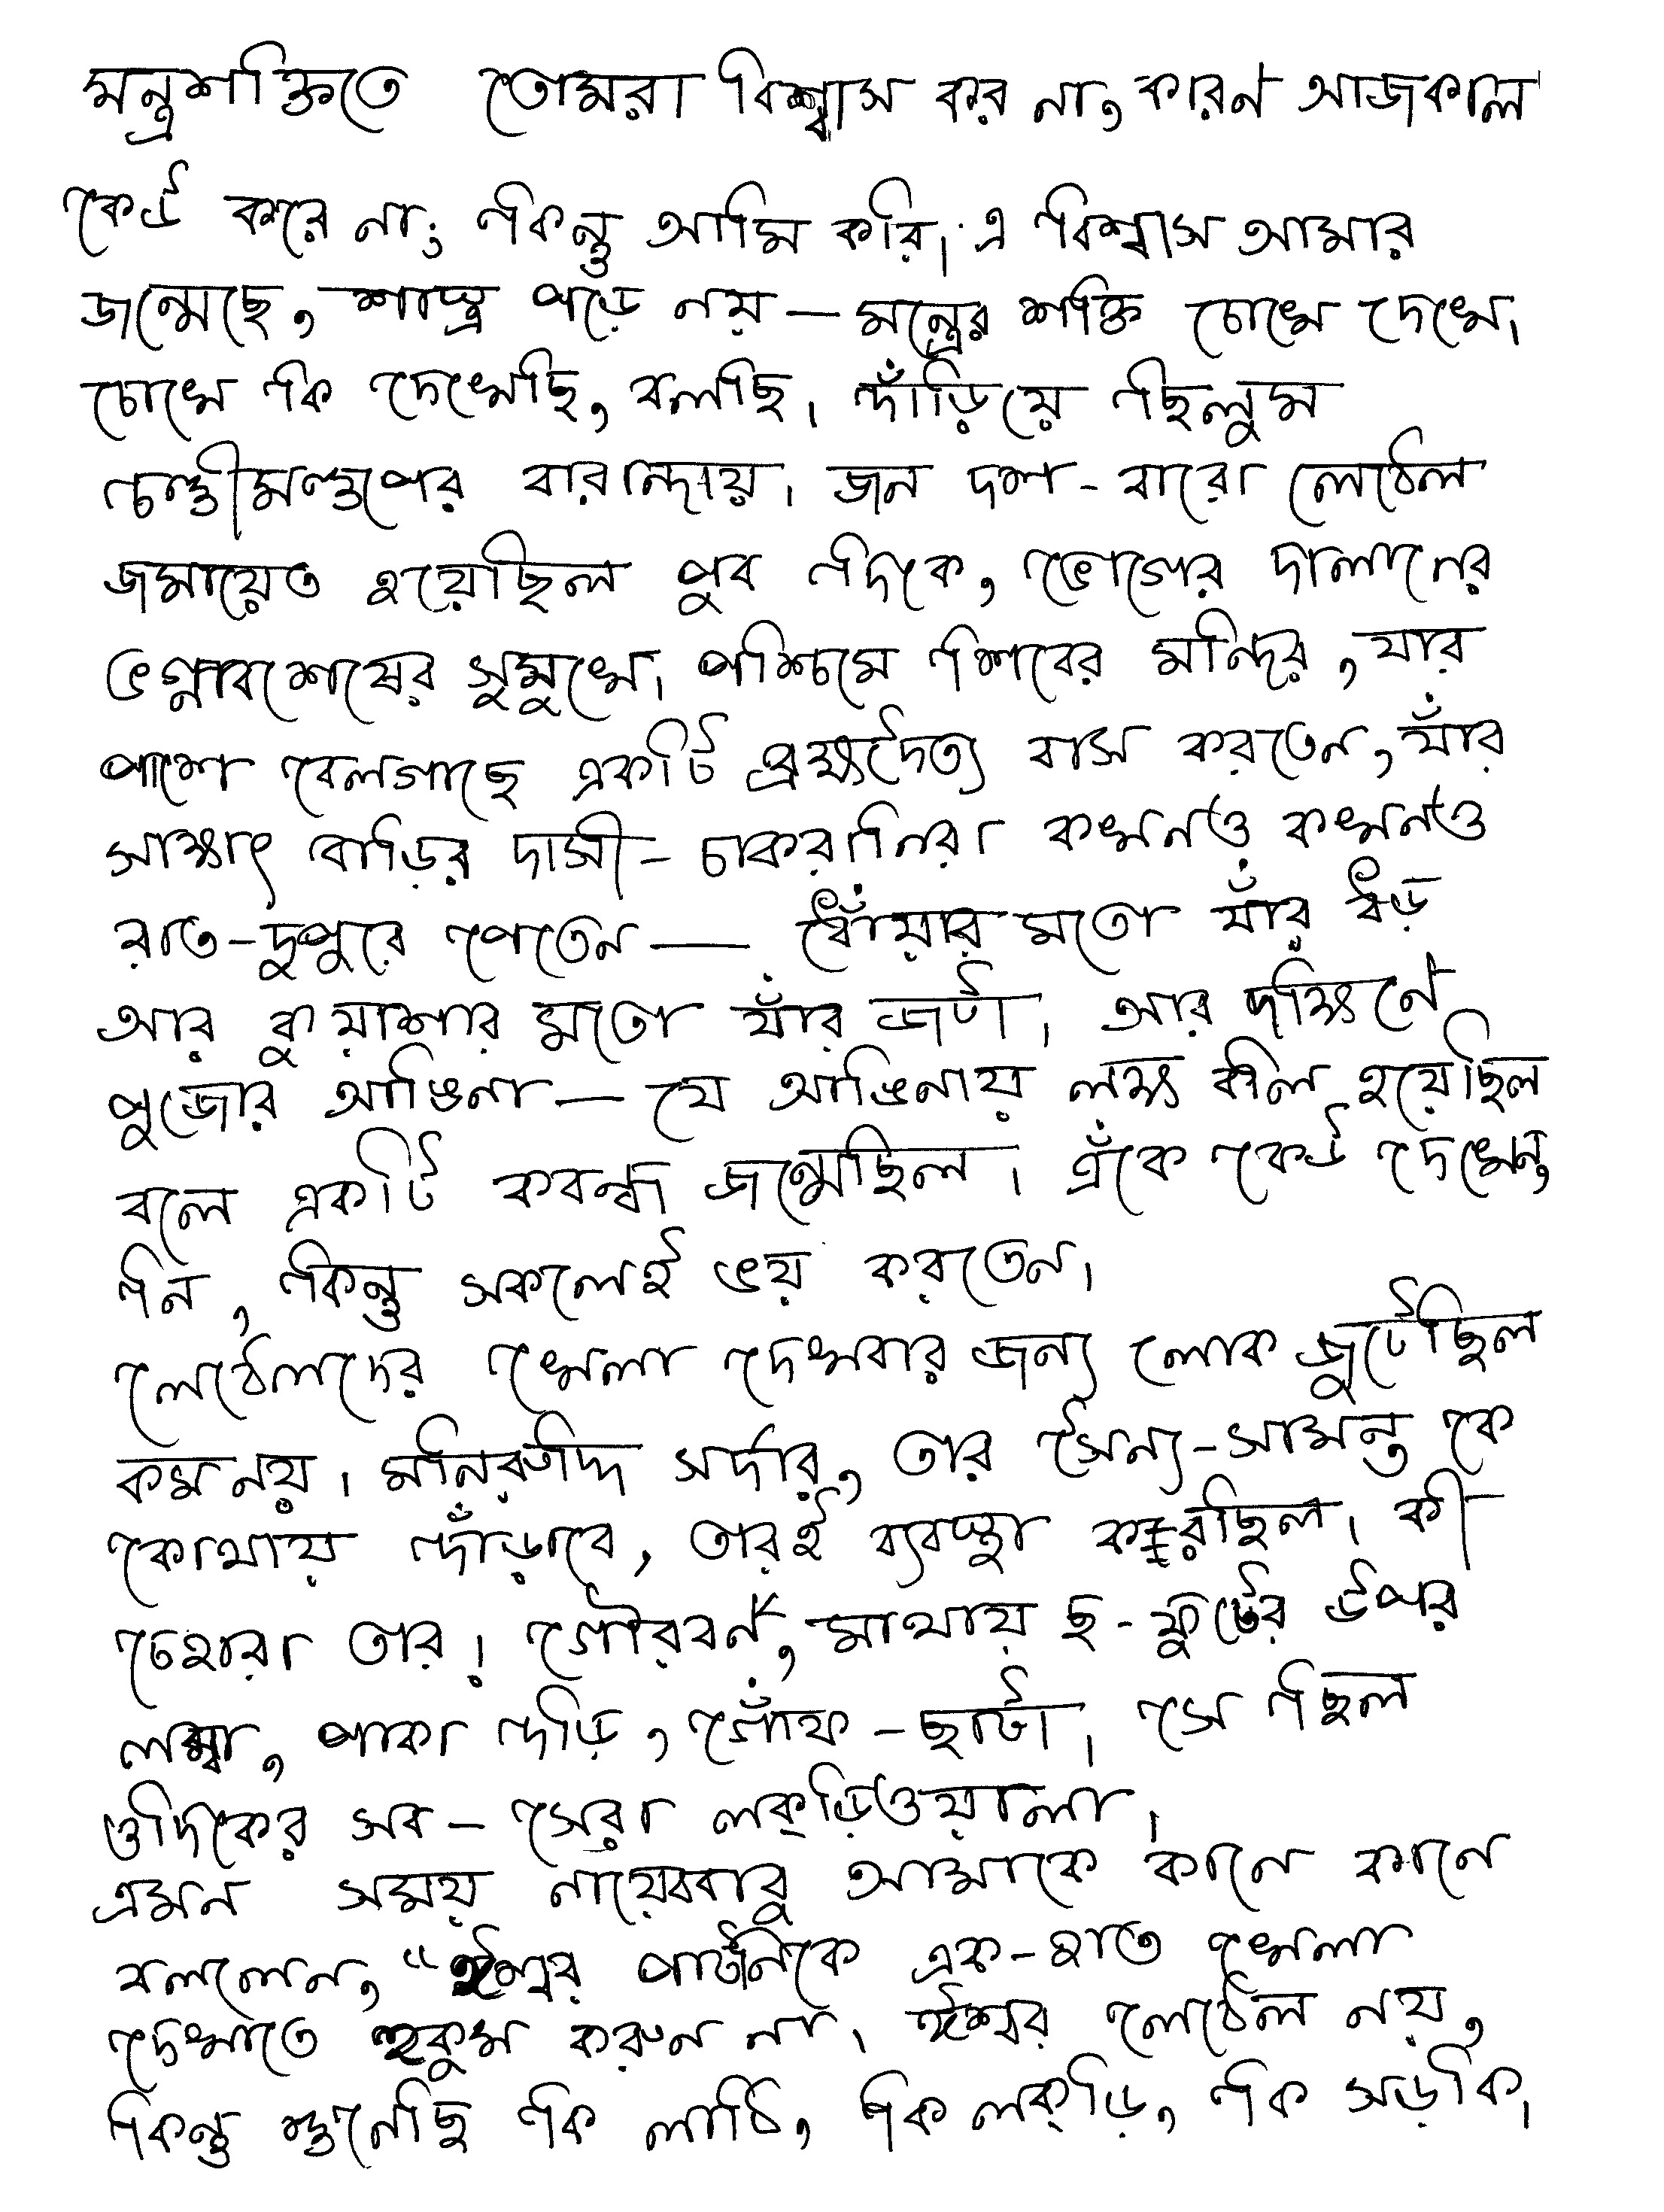 মন্ত্রশক্তিতে তোমরা বিশ্বাস কর না, কারণ আজকাল
কেউ করে না; কিন্তু আমি করি। এ বিশ্বাস আমার
জন্মেছে, শাস্ত্র পড়ে নয় — মন্ত্রের শক্তি চোখে দেখে।
চোখে কি দেখেছি, বলছি। দাঁড়িয়ে ছিলুম
চণ্ডীমণ্ডপের বারান্দায়। জন দশ-বারো লেঠেল
জমায়েত হয়েছিল পুব দিকে, ভোগের দালানের
ভগ্নাবশেষের সুমুখে। পশ্চিমে শিবের মন্দির, যার
পাশে বেলগাছে একটি ব্রহ্মদৈত্য বাস করতেন, যাঁর
সাক্ষাৎ বাড়ির দাসী-চাকরানিরা কখনও কখনও
রাত-দুপুরে পেতেন — ধোঁয়ার মতো যাঁর ধড়
আর কুয়াশার মতো যাঁর জটা। আর দক্ষিণে
পুজোর আঙিনা — যে আঙিনায় লক্ষ বলি হয়েছিল
বলে একটি কবন্ধ জন্মেছিল। এঁকে কেউ দেখেন
নি, কিন্তু সকলেই ভয় করতেন।
লেঠেলদের খেলা দেখবার জন্য লোক জুটেছিল
কম নয়। মনিরুদ্দি সর্দার, তার সৈন্য-সামন্ত কে
কোথায় দাঁড়াবে, তারই ব্যবস্থা করছিল। কী
চেহারা তার! গৌরবর্ণ, মাথায় ছ-ফুটের উপর
লম্বা, পাকা দাড়ি, গোঁফ-ছাটা। সে ছিল
ওদিকের সব-সেরা লক্‌ড়িওয়ালা।
এমন সময় নায়েববাবু আমাকে কানে কানে
বললেন, “ঈশ্বর পাটনিকে এক-হাত খেলা
দেখাতে হুকুম করুন না। ঈশ্বর লেঠেল নয়,
কিন্তু শুনেছি কি লাঠি, কি লক্‌ড়ি, কি সড়কি।